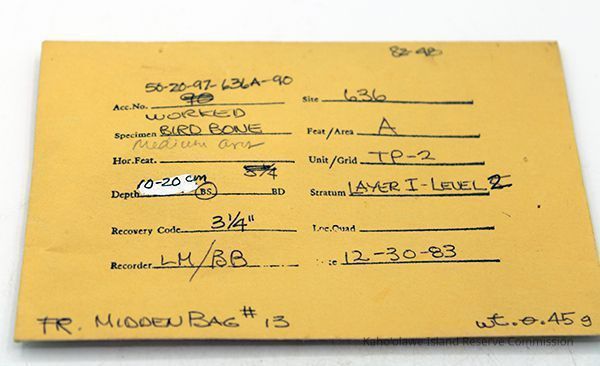 82-98
50-20-97-636A-90
Acc.No. 90 Site 636
WORKED
Specimen BIRD BONE Feat/Area A
Medium
Hor.Feat. Unit/Grid TP-2
Depth 10-20 cm BS BD Stratum LAYER I-LEVEL 2
Recovery Code 3¼" Loc.Quad
Recorder LM/BB 12-30-83
FR. MIDDEN BAG # 13 wt. 0.45g
Kaho'olawe Island Reserve Commission